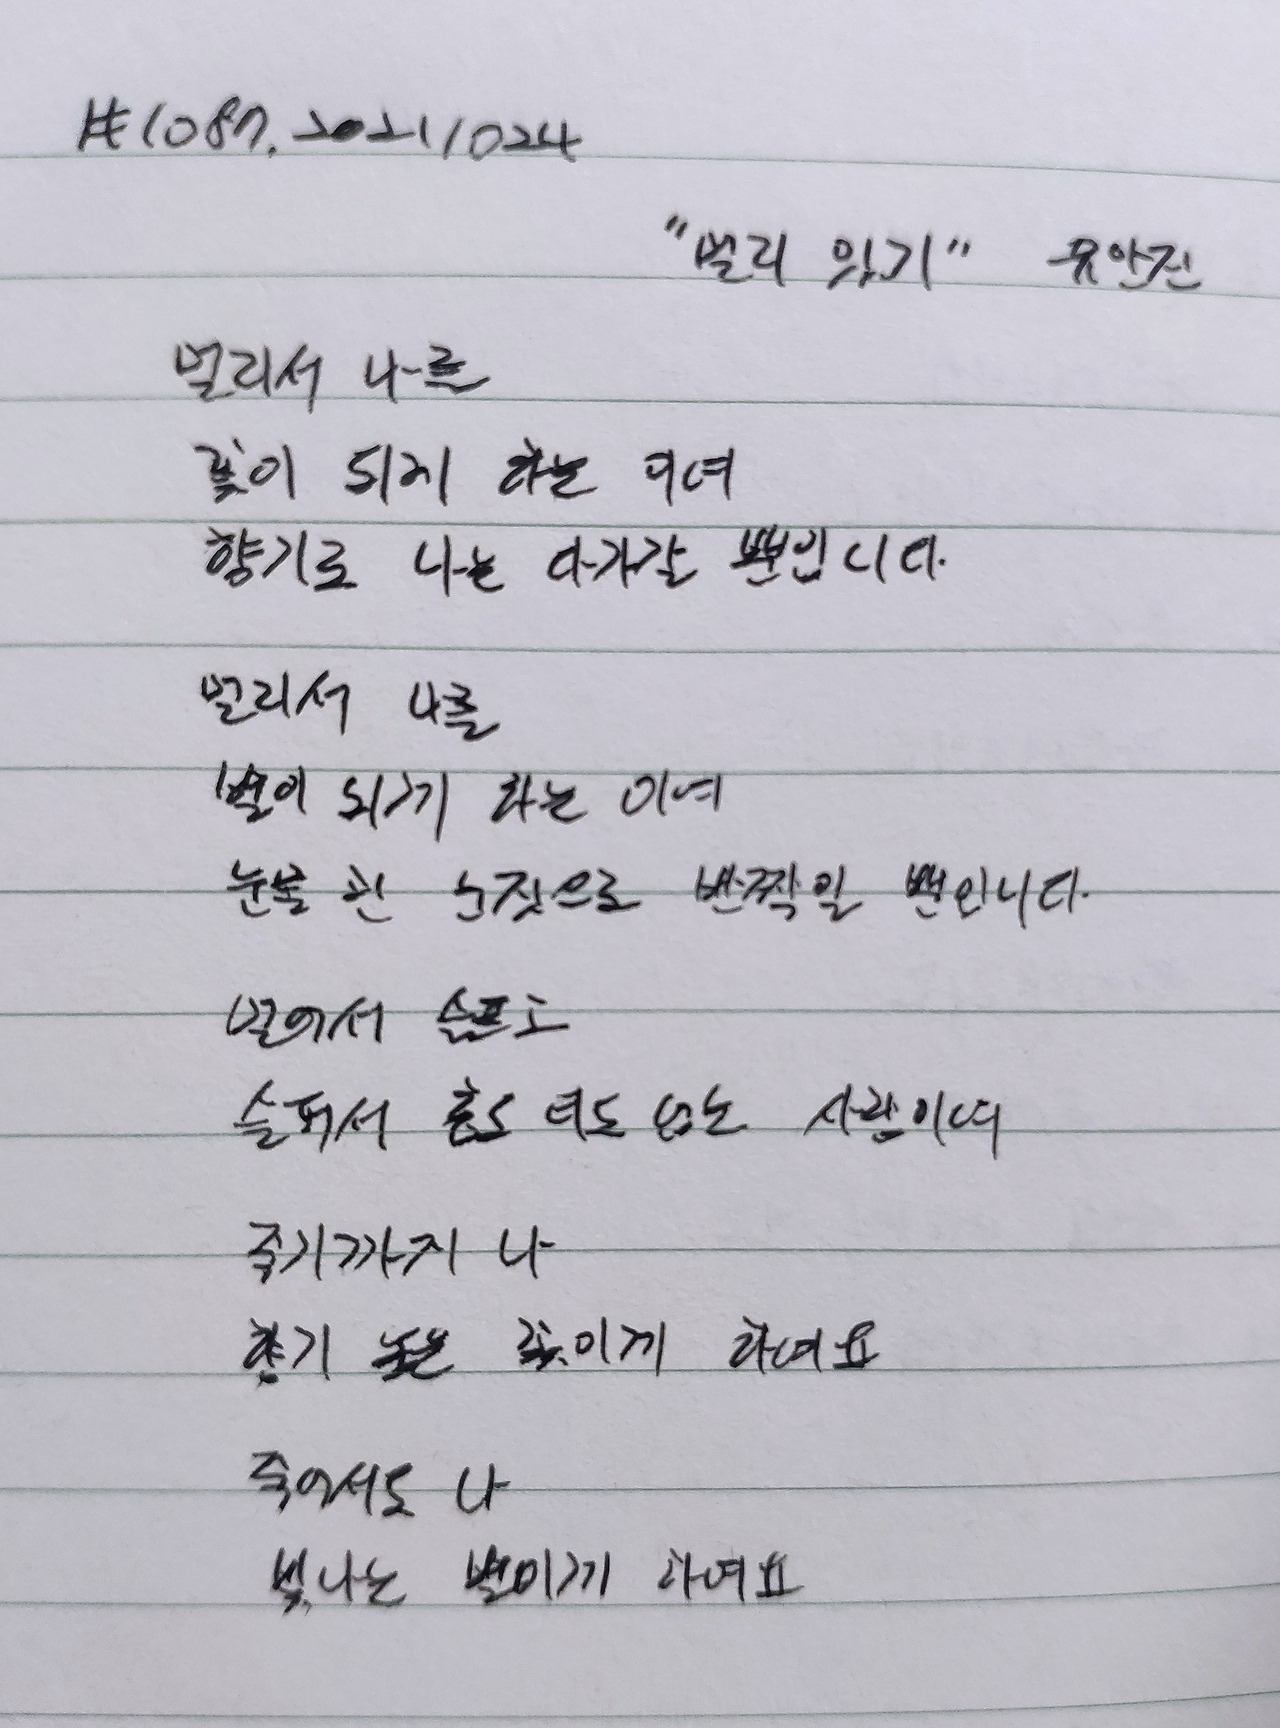 #1087. 20211024
"멀리 있기" 유안진
멀리서 나를
꽃이 되게 하는 이여
향기로 나는 다가갈 뿐입니다.
멀리서 나를
별이 되게 하는 이여
눈물 괸 눈짓으로 반짝일 뿐입니다.
멀어서 슬프고
슬퍼서 흠도 티도 없는 사랑이여
죽기까지 나
향기 높은 꽃이게 하여요
죽어서도 나
빛나는 별이게 하여요